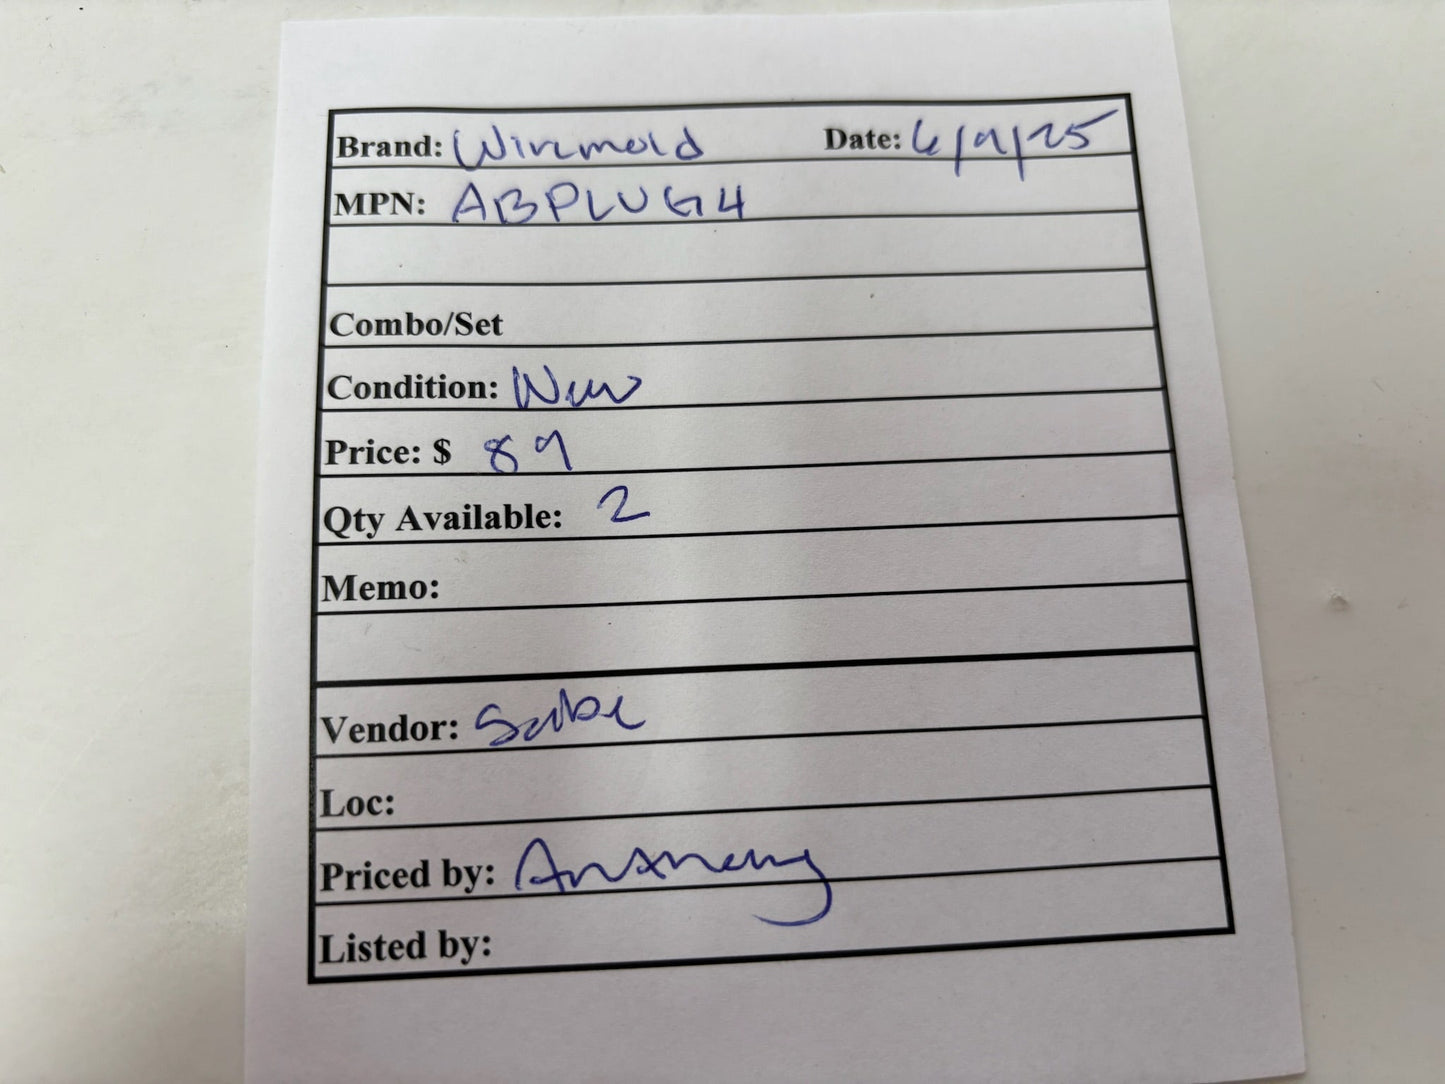 Brand: Wiremold Date: 6/9/25
MPN: ABPLUG4
Combo/Set
Condition: New
Price: $ 89
Qty Available: 2
Memo:
Vendor: Sabe
Loc:
Priced by: Anthony
Listed by: